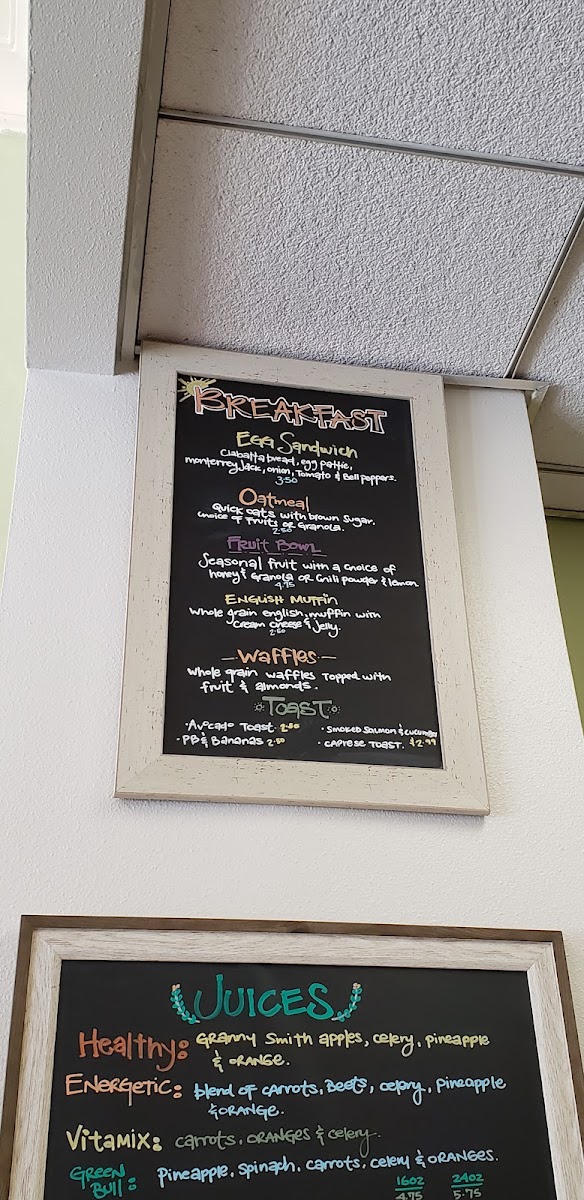 BREAKFAST
Egg Sandwich
Ciabatta bread, egg pattie,
monterrey Jack, onion, Tomato & Bell peppers.
3.50
Oatmeal
Quick oats with brown sugar.
choice of Fruits or Granola.
2.50
Fruit Bowl
Seasonal fruit with a choice of
honey & Granola or Chili powder & lemon
4.75
English Muffin
Whole grain english muffin with
cream cheese & Jelly.
2.50
-Waffles-
Whole grain waffles topped with
fruit & almonds.
Toast
• Avocado Toast. 2.50
• Smoked Salmon & Cucumber
• PB & Bananas 2.50
• Caprese Toast. $2.99
JUICES
Healthy: Granny Smith apples, celery, pineapple
& orange.
Energetic: blend of carrots, Beets, celery, pineapple
& orange.
Vitamix: carrots, oranges & celery.
Green
Bull: Pineapple, spinach, carrots, celery & oranges.
16oz 24oz
4.75 5.75